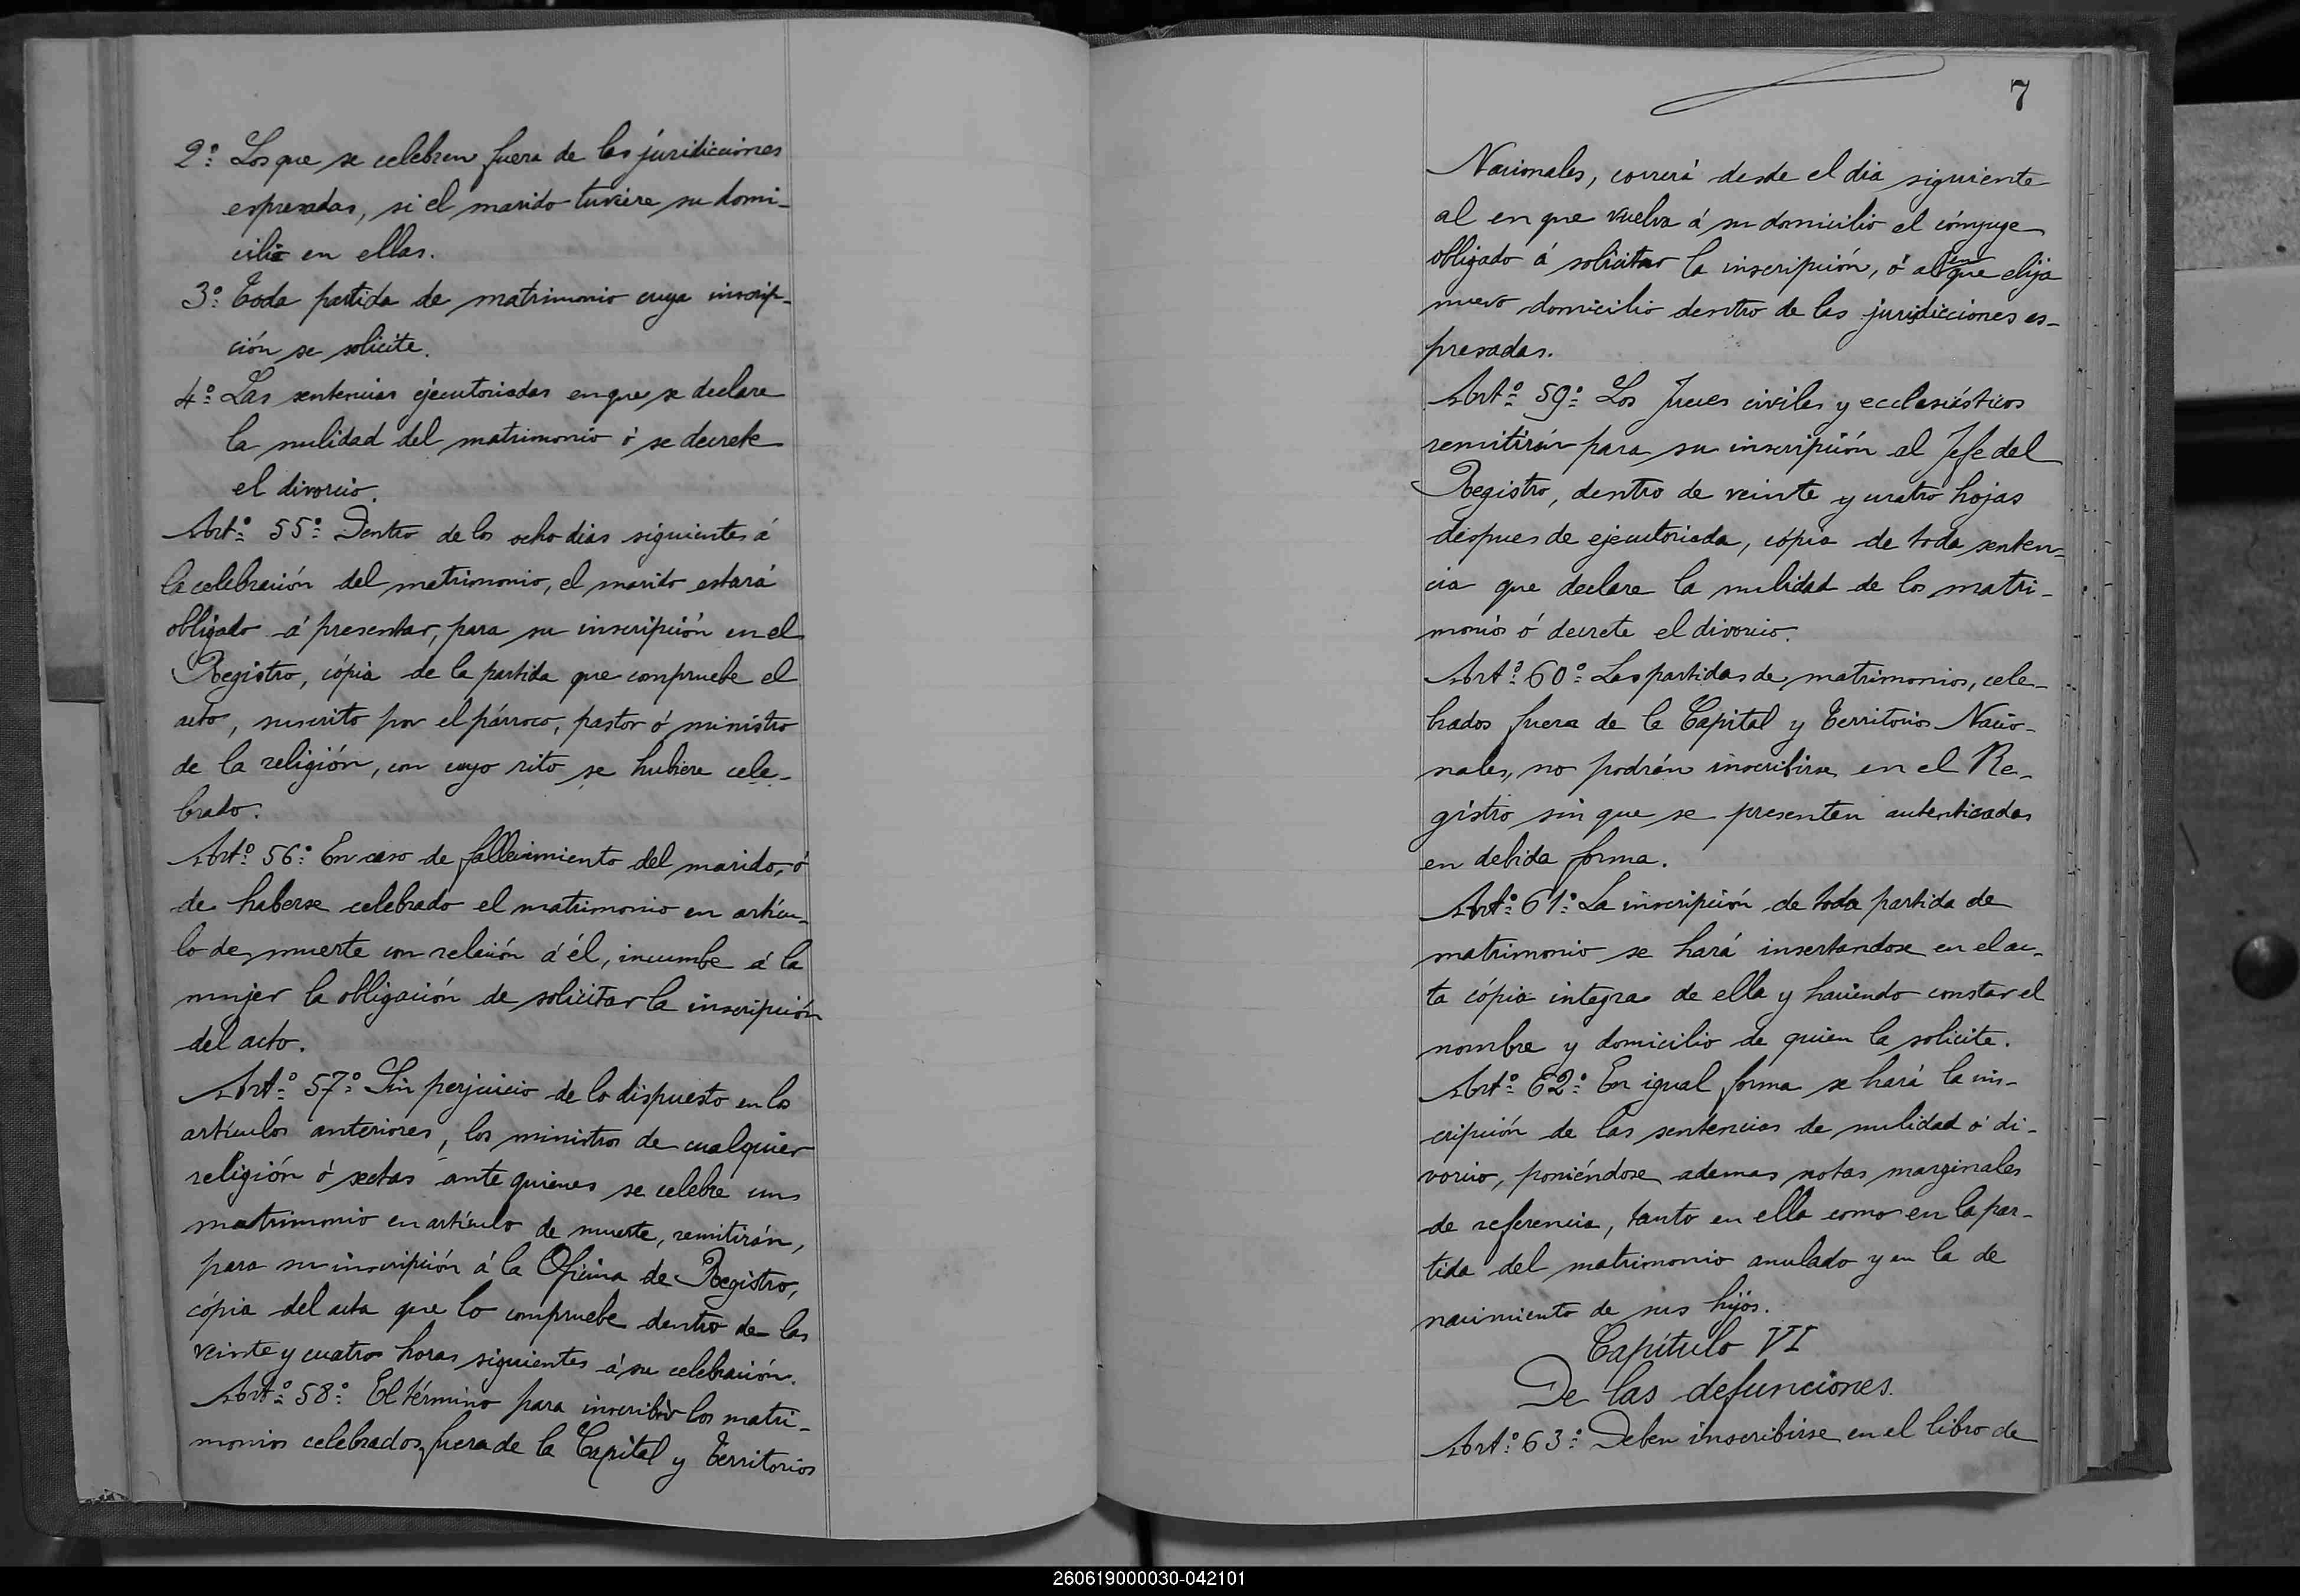 2º Los que se celebren fuera de las juridicciones
espresadas, si el marido tuviere su domi-
cilio en ellas.
3º Toda partida de matrimonio cuya inscrip-
ción se solicite.
4º Las sentencias ejecutoriadas en que se declare
la nulidad del matrimonio ó se decrete
el divorcio.
Artº 55º Dentro de los ocho dias siguientes á
la celebración del matrimonio, el marido estará
obligado á presentar, para su inscripción en el
Registro, cópia de la partida que compruebe el
acto, suscrito por el párroco, pastor ó ministro
de la religión, con cuyo rito se hubiere cele-
brado.
Artº 56º En caso de fallecimiento del marido, ó
de haberse celebrado el matrimonio en artícu-
lo de muerte con relación á él, incumbe á la
mujer la obligación de solicitar la inscripción
del acto.
Artº 57º Sin perjuicio de lo dispuesto en los
artículos anteriores, los ministros de cualquier
religión ó sectas ante quienes se celebre un
matrimonio en artículo de muerte, remitirán,
para su inscripción á la Oficina de Registro,
cópia del acta que lo compruebe dentro de las
veinte y cuatro horas siguientes á su celebración.
Artº 58º El término para inscribir los matri-
monios celebrados fuera de la Capital y Territorios
7
Nacionales, correrá desde el dia siguiente
al en que vuelva á su domicilio el cónyuge
obligado á solicitar la inscripción, ó al en que elija
nuevo domicilio dentro de las jurisdicciones es-
presadas.
Artº 59º Los Jueces civiles y ecclesiásticos
remitirán para su inscripción al Jefe del
Registro, dentro de veinte y cuatro hojas
despues de ejecutoriada, cópia de toda senten-
cia que declare la nulidad de los matri-
monios ó decrete el divorcio.
Artº 60º Las partidas de matrimonios, cele-
brados fuera de la Capital y Territorios Nacio-
nales, no podrán inscribirse en el Re-
gistro sin que se presenten autenticadas
en debida forma.
Artº 61º La inscripción de toda partida de
matrimonio se hará insertandose en el ac-
ta cópia integra de ella y haciendo constar el
nombre y domicilio de quien la solicite.
Artº 62º En igual forma se hará la ins-
cripción de las sentencias de nulidad ó di-
vorcio, poniéndose ademas notas marginales
de referencia, tanto en ella como en la par-
tida del matrimonio anulado y en la de
nacimiento de sus hijos.
Capítulo VI
De las defunciones.
Artº 63º Deben inscribirse en el libro de
260619000030-042101